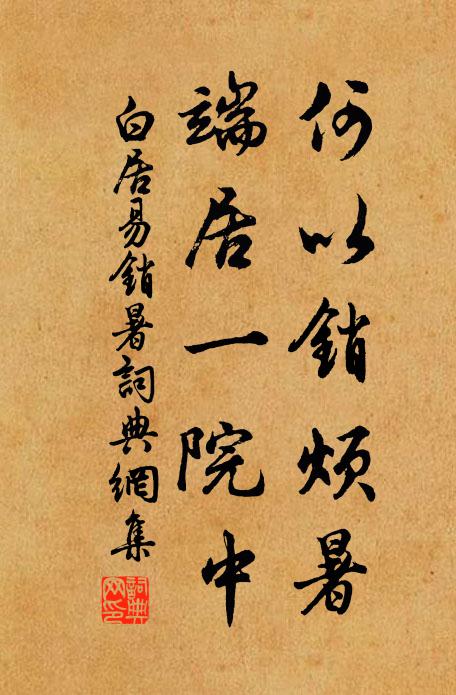 何以銷煩暑
端居一院中
白居易銷暑詞典網集
詞典網印